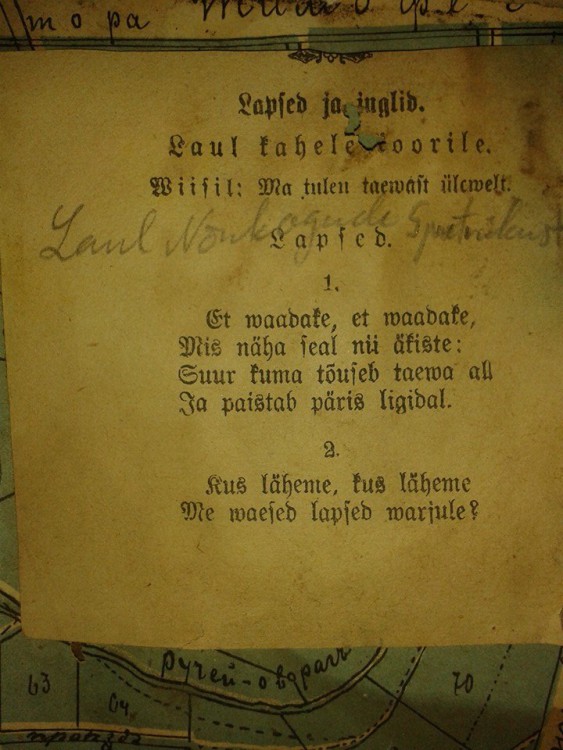 т о р а
Lapsed ja inglid.
Laul kahele koorile.
Wiisil: Ma tulen taewast ülewelt.
Laul
Lapsed.
1.
Et waadake, et waadake,
Mis näha seal nii äkiste:
Suur kuma tõuseb taewa all
Ja paistab päris ligidal.
2.
Kus läheme, kus läheme
Me waesed lapsed warjule?
ручей-оврагъ
63
64
70